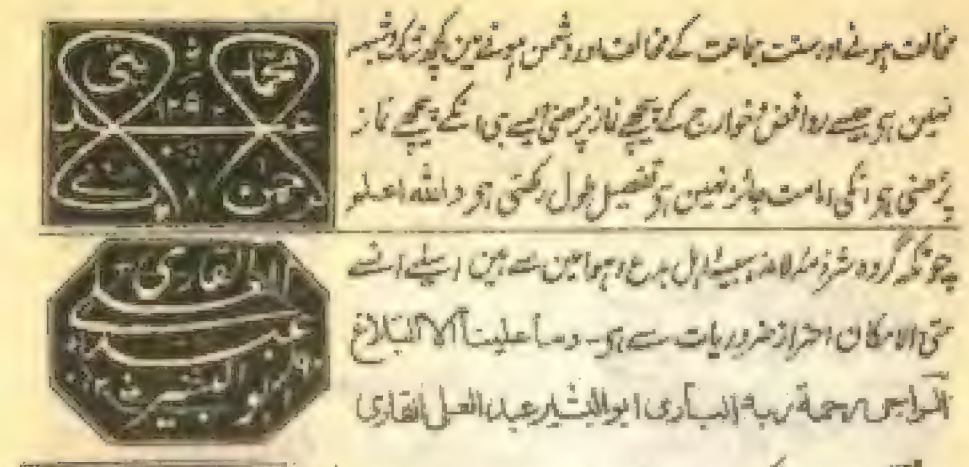 مخالف ہونے اور سنت جماعت کے مخالف اور دشمن ہونے مین کچھ شک و شبہہ
نہین ہی جیسے روافض خوارج کے پیچھے نماز پڑھنی ایسے ہی انکے پیچھے نماز
پڑھنی ہی انکی امامت جائز نہین ہی تفصیل طول رکھتی ہی واللہ اعلم
چونکہ گروہ لامذہبیہ اہل بدع و ہوا مین سے ہین اسلیے انسے
حتی الامکان احتراز ضروریات سے ہی۔ وما علینا الا البلاغ
الراجی رحمة ربہ الباری ابو البشیر عبد العلی القاری
محمد
عبد
رحمن
العلی القاری
عبد
ابو البشیر